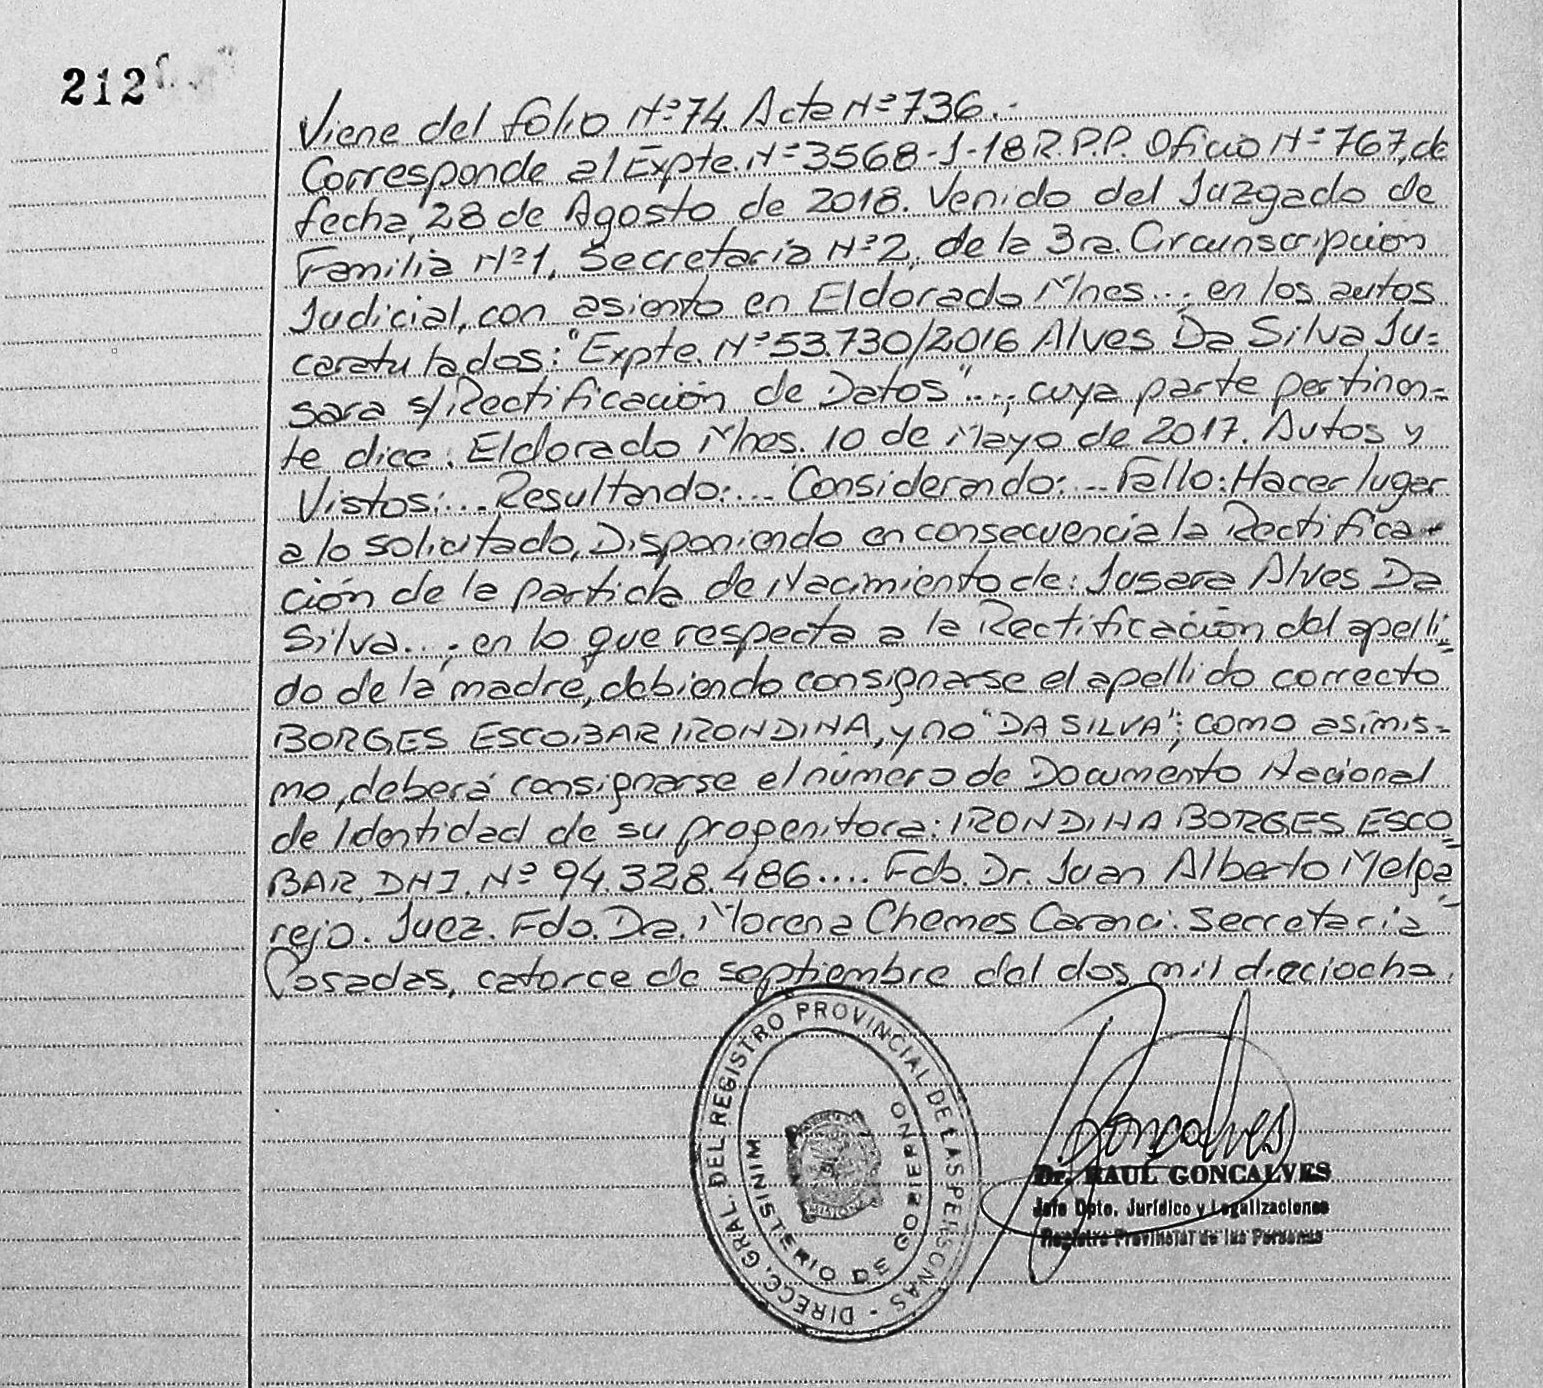 212
Viene del folio Nº 74. Acta Nº 736.-
Corresponde al Expte. Nº 3568-J-18 R.P.P. Oficio Nº 767, de
fecha, 28 de Agosto de 2018. Venido del Juzgado de
Familia Nº 1, Secretaria Nº 2, de la 3ra. Circunscripcion
Judicial, con asiento en Eldorado Mnes...; en los autos
caratulados: "Expte. Nº 53.730/2016 Alves Da Silva Ju=
sara s/Rectificación de Datos"...; cuya parte pertinen=
te dice: Eldorado Mnes. 10 de Mayo de 2017. Autos y
Vistos:... Resultando:... Considerando:... Fallo: Hacer lugar
a lo solicitado, Disponiendo en consecuencia la Rectifica-
ción de la partida de Nacimiento de: Jusara Alves Da
Silva...; en lo que respecta a la Rectificación del apelli=
do de la madre, debiendo consignarse el apellido correcto
BORGES ESCOBAR IRONDINA, y no "DA SILVA"; como asimis=
mo, deberá consignarse el número de Documento Nacional
de Identidad de su progenitora: IRONDINA BORGES ESCO=
BAR, DNI. Nº 94.328.486.... Fdo. Dr. Juan Alberto Melga=
rejo. Juez. Fdo. Dra. Morena Chemes Caranci. Secretaria
Posadas, catorce de septiembre del dos mil dieciocho.
DIRECC. GRAL. DEL REGISTRO PROVINCIAL DE LAS PERSONAS -
MINISTERIO DE GOBIERNO
MISIONES
Gonçalves
Dr. RAUL GONCALVES
Jefe Dpto. Jurídico y Legalizaciones
Registro Provincial de las Personas